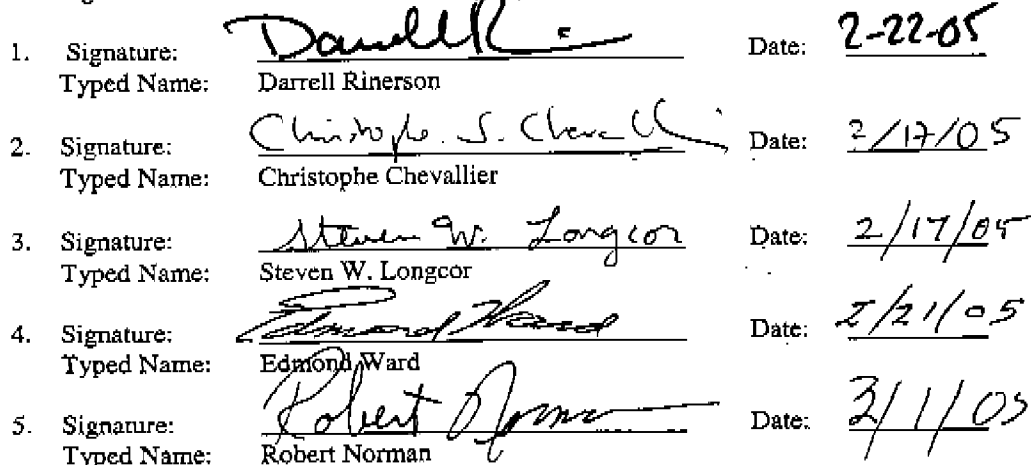 1. Signature: Darrell Rinerson Date: 2-22-05
Typed Name: Darrell Rinerson
2. Signature: Christophe J. Chevallier Date: 2/17/05
Typed Name: Christophe Chevallier
3. Signature: Steven W. Longcor Date: 2/17/05
Typed Name: Steven W. Longcor
4. Signature: Edmond Ward Date: 2/21/05
Typed Name: Edmond Ward
5. Signature: Robert Norman Date: 3/1/05
Typed Name: Robert Norman